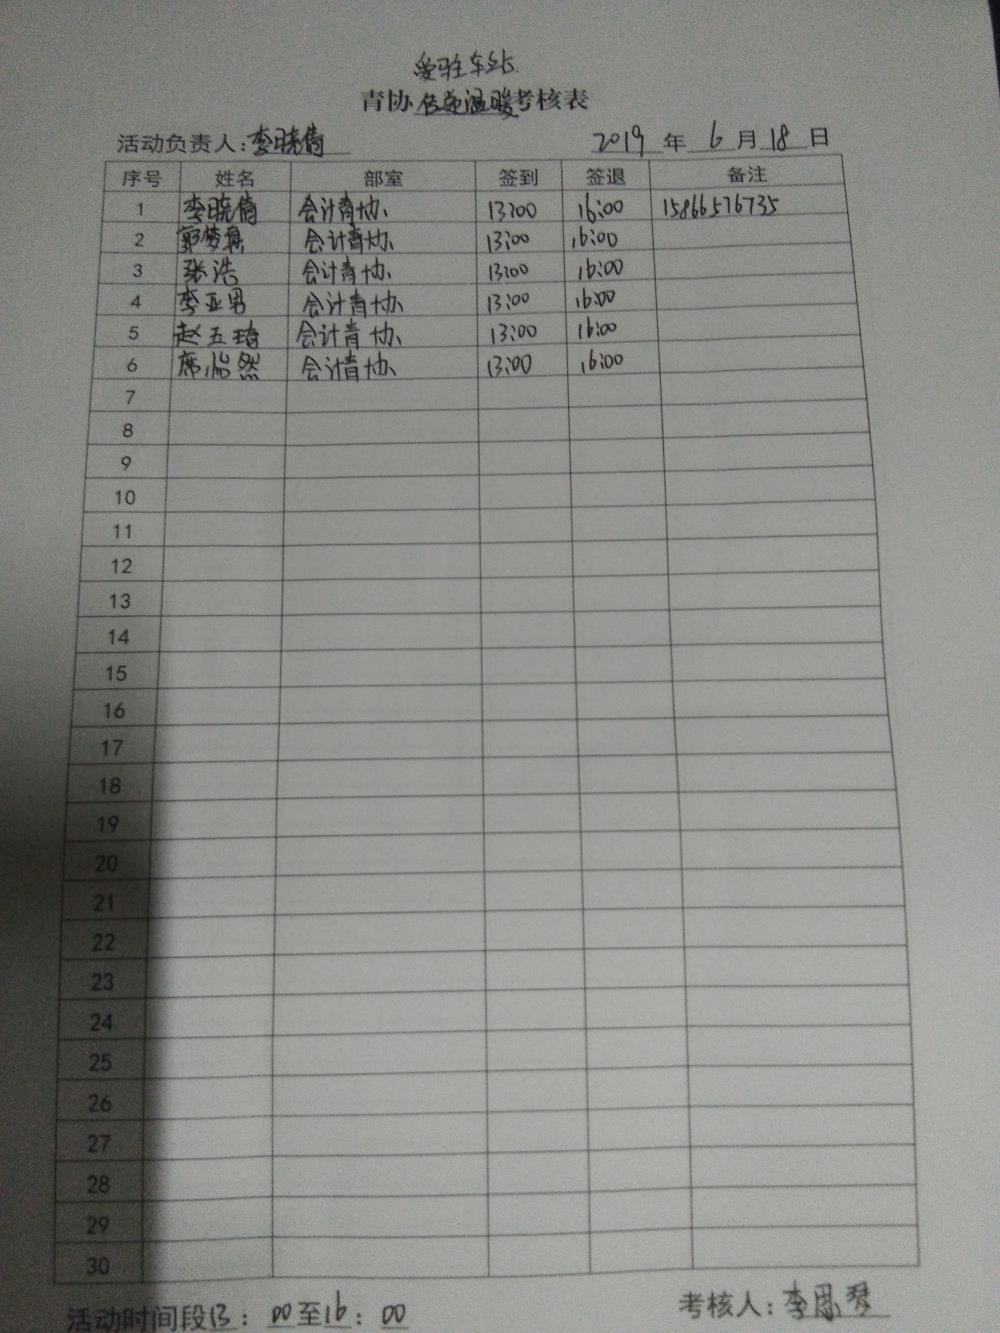 爱驻车站
青协传递温暖考核表
活动负责人:李晓倩 2019 年 6 月 18 日
序号 姓名 部室 签到 签退 备注
1 李晓倩 会计青协 13:00 16:00 15866576735
2 郭梦 会计青协 13:00 16:00
3 张浩 会计青协 13:00 16:00
4 李亚男 会计青协 13:00 16:00
5 赵五琦 会计青协 13:00 16:00
6 席怡然 会计青协 13:00 16:00
7
8
9
10
11
12
13
14
15
16
17
18
19
20
21
22
23
24
25
26
27
28
29
30
活动时间段13:00至16:00 考核人:李思琴